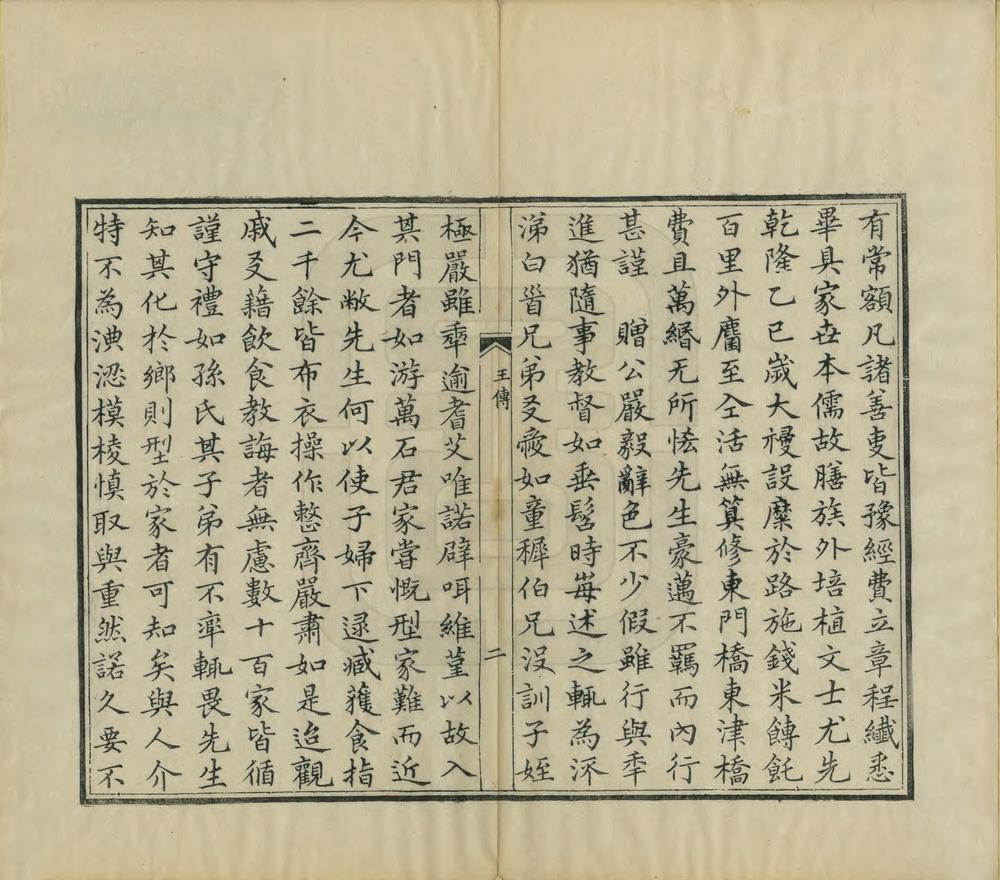 有常額凡諸善叓皆豫經費立章程纖悉
畢具家世本儒故膳族外培植文士尤先
乾隆乙巳歲大祲設糜於路施錢米餺飥
百里外麕至仝活無算修東門橋東津橋
費且萬緡无所恡先生豪邁不羈而內行
甚謹　贈公嚴毅辭色不少假雖行與秊
進猶隨事教督如垂髫時每述之輒為泲
涕白首兄弟叐愛如童穉伯兄沒訓子姪
王傳
二
極嚴雖秊逾耆艾唯諾辟咡維堇以故入
其門者如游萬石君家嘗慨型家難而近
今尤敝先生何以使子婦下逯臧獲食指
二千餘皆布衣操作整齊嚴肅如是迨觀
戚叐藉飲食教誨者無慮數十百家皆循
謹守禮如孫氏其子弟有不率輒畏先生
知其化於鄉則型於家者可知矣與人介
特不為淟涊模棱慎取與重然諾久要不